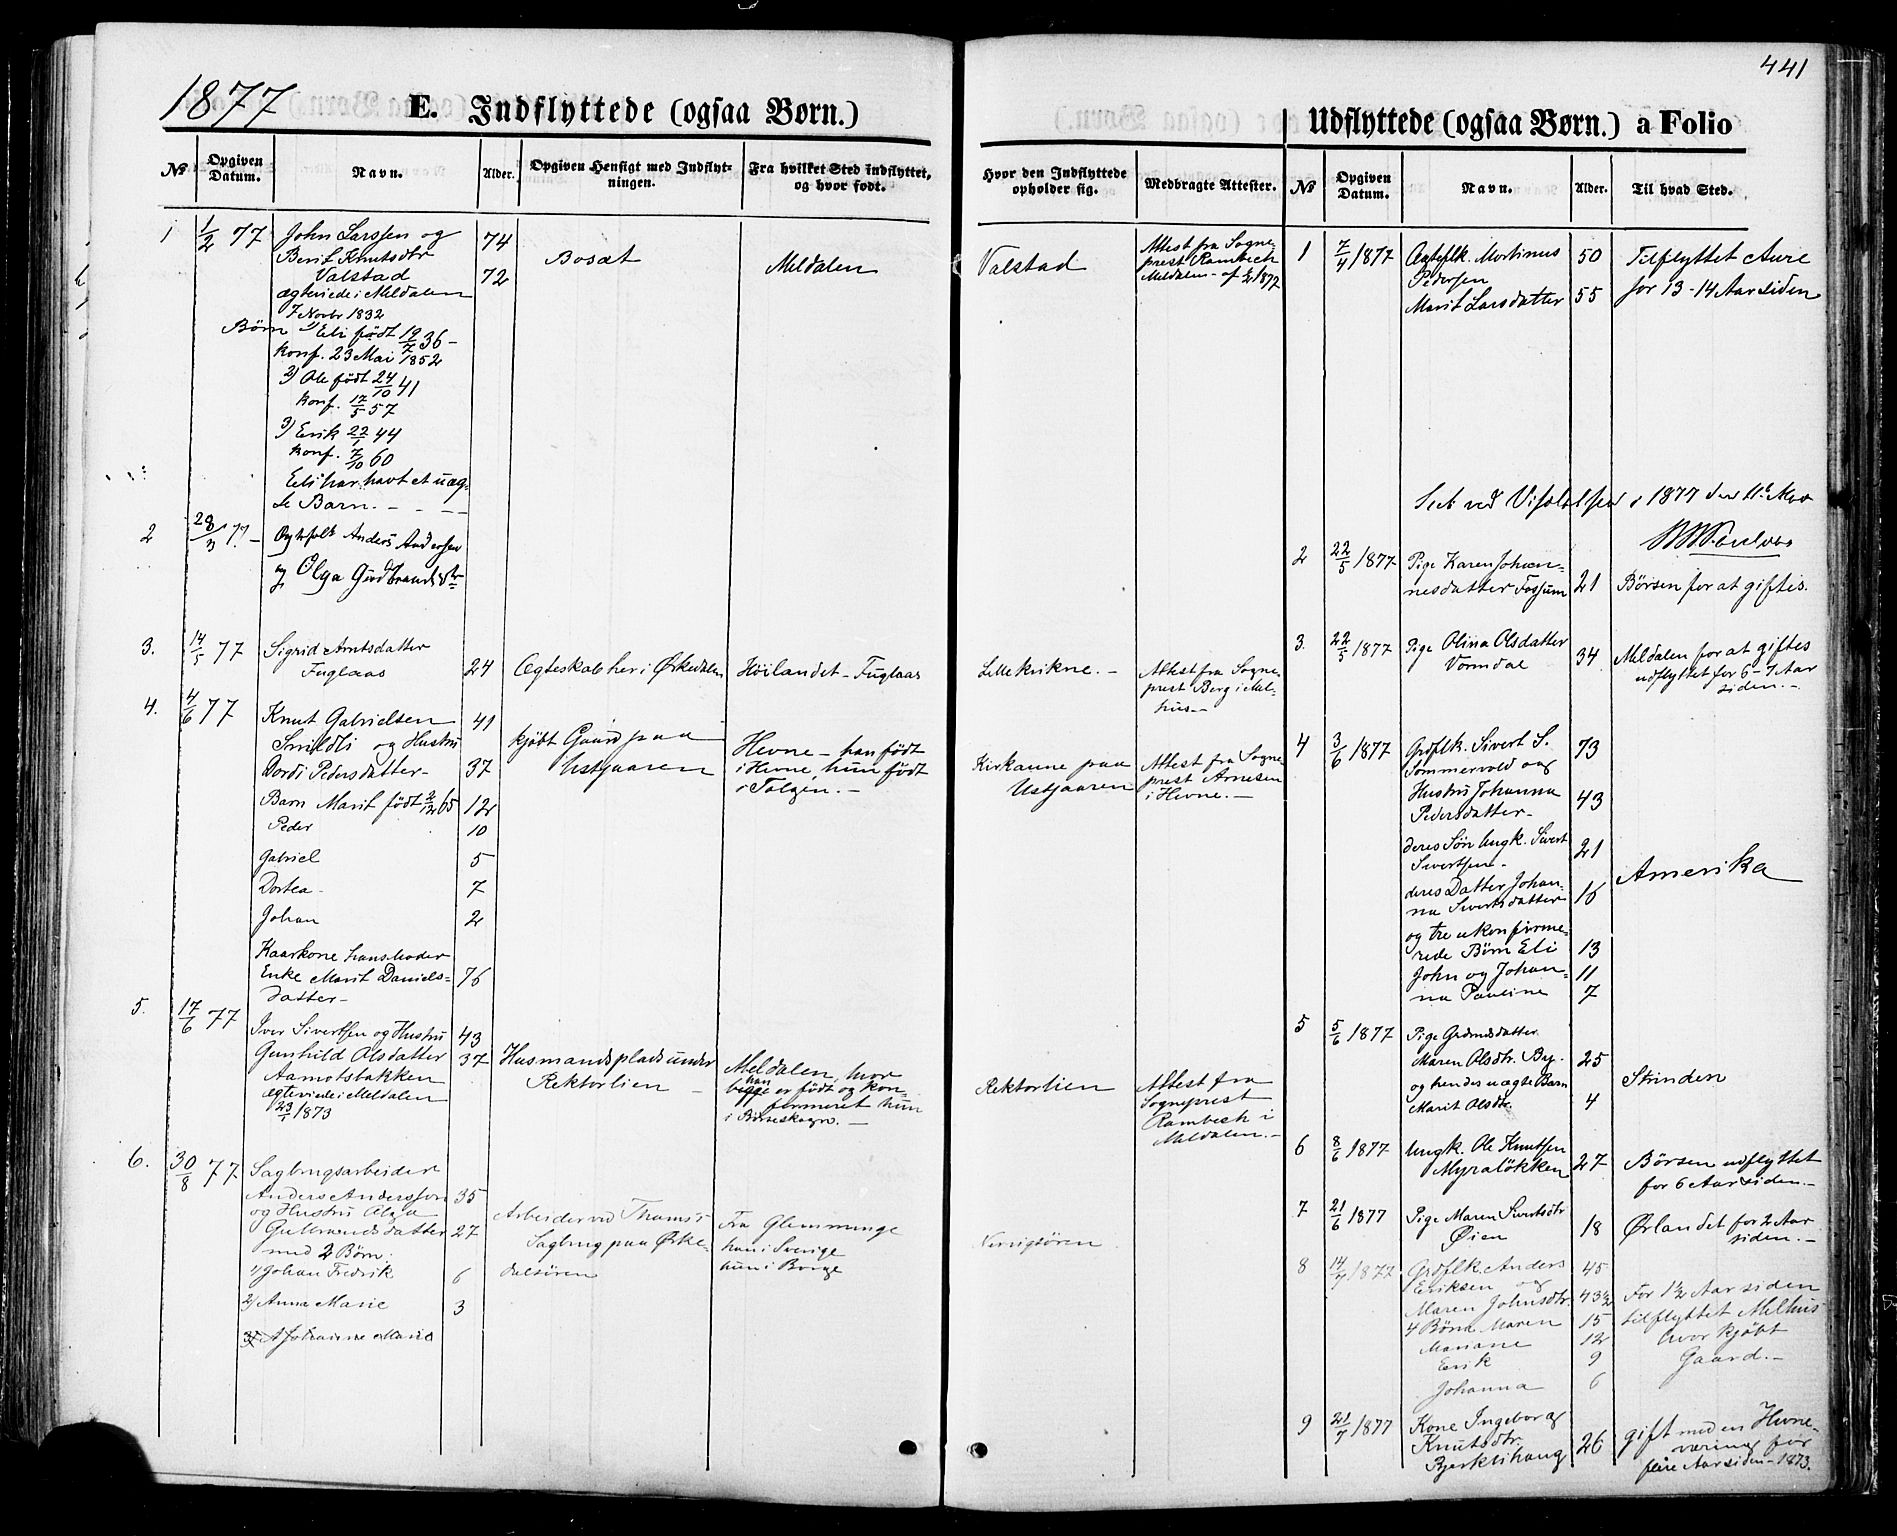 1877
E. Indflyttede (ogsaa Børn.)
No
Opgiven Datum.
Navn.
Alder.
Opgiven Hensigt med Indflyt-
ningen.
Fra hvilket Sted indflyttet,
og hvor født.
Hvor den Indflyttede
opholder sig.
Medbragte Attester.
1
1/2 77
John Larssen og
74
Berit Knutsdtr
Valstad
72
ægteviede i Meldalen
7 Novbr 1832
Børn 1) Eli født 19/7 36 -
konf. 23 Mai 1852
2) Ole født 24/10 41
konf. 17/5 57
3) Erik 22/1 44
konf. 7/10 60
Eli har havt et uæg-
te Barn. - - - -
Bosat
Meldalen
Valstad
Attest fra Sogne-
prest Rambech
Meldalen - af 1877
2
28/3 77 -
Anders Andersen
og Olga Gudbrandsdtr
3.
14/5 77
Sigrid Arntsdatter
Fuglaas
24
Ægteskab her i Ørkedalen
Höilandet - Fuglaas
Lillekikne. -
Attest fra Sogne-
prest Berg i Mel-
hus. -
4.
4/6 77
Knut Gabrielsen
41
Smildli og Hustru
Dordi Pedersdatter -
37
Barn Marit født 2/12 65
12
Peder
10
Gabriel
5
Dortea -
7
Johan
2
Kaarkone hans Moder
Enke Marit Daniels-
76
datter -
kjöbt Gaard paa
Ustjaaren
Hevne - han født
i Hevne, hun født
i Tolgen. -
Kirkaune paa
Ustjaaren
Attest fra Sogne-
prest Arnesen
i Hevne. -
5.
17/6 77
Iver Sivertsen og Hustru
43
Gunhild Olsdatter
37
Aamotsbakken
ægteviede i Meldalen
23/1 1873
Husmandsplads under
Rektorlien -
Meldalen, hvor
han
begge er født og kon-
firmeret hun
i Börseskogn. -
Rektorlien
Attest fra
Sogneprest
Rambech i
Meldalen. -
6.
30/8 77
Sagbrugsarbeider
Anders Anderssen
35
og Hustru Olga
Gulbrandsdatter
27
med 2 Børn:
1) Johan Fredrik
6
2) Anna Marie
3
3) Johanne Marie
Arbeider ved Thams's
Sagbrug paa Ørke-
dalsören
Fra Glemminge
han i Sverige
hun i Borge
Nervigsören
441
Udflyttede (ogsaa Børn.) a Folio
No
Opgiven Datum.
Navn.
Alder.
Til hvad Sted.
1
7/4 1877
Ægteflk. Mortinus
50
Pedersen
Marit Larsdatter
55
Tilflyttet Aure
for 13 - 14 Aar siden
Seet ved Visitatsen i 1877 den 11te
2
22/5 1877
Pige Karen Johan-
nesdatter Fossum
21
Börsen for at giftes.
3.
22/5 1877
Pige Olina Olsdatter
Vormdal
34
Meldalen for at giftes
udflyttet for 6 - 7 Aar
siden. -
4
3/6 1877
Grdflk. Sivert S.
73
Sommervold og
Hustru Johanna
43
Pedersdatter -
deres Søn Ungk. Sivert
21
Sivertsen -
deres Datter Johan-
16
na Sivertsdatter
og tre ukonfirme-
rede Børn Eli
13
John og Johan-
11
na Pauline
7
Amerika
5
5/6 1877
Pige Grdmdsdatter
Maren Olsdtr. By
25
og hendes uægte Barn
Marit Olsdtr.
4
Strinden
6
8/6 1877
Ungk. Ole Knutsen
Myralökken
27
Börsen udflyttet
for 6 Aar siden. -
7
21/6 1877
Pige Maren Sivertsdtr
Øien
18
Ørlandet for 2 Aar
siden. -
8
14/7 1877
Grdflk. Anders
45
Eriksen og
Maren Johnsdtr.
43 1/2
4 Børn Maren
15
Mariane
12
Erik
9
Johanna
6
For 1 1/2 Aar siden
tilflyttet Melhus
hvor kjöbt
Gaard. -
9
21/7 1877
Kone Ingeborg
Knutsdtr.
26
Bjerklihaug
gift med en Hevne-
væring for
flere Aar siden - 1873.